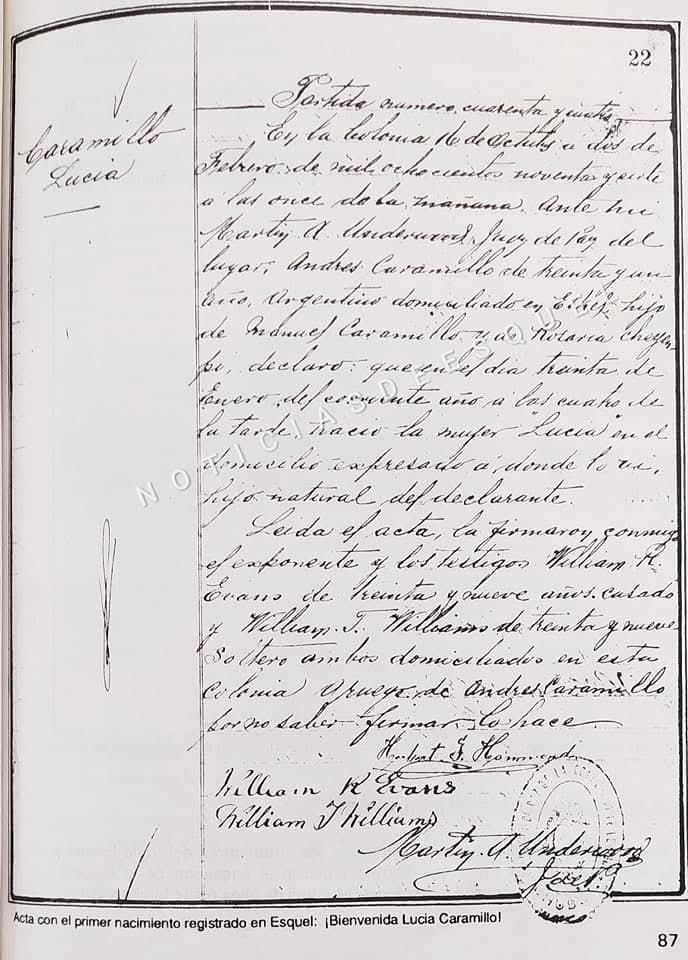 22
Caramillo
Lucia
Partida numero cuarenta y cuatro
En la Colonia 16 de Octubre a dos de
Febrero de mil ochocientos noventa y siete
a las once de la mañana. Ante mi
Martin A. Underwood Juez de Paz del
lugar, Andres Caramillo de treinta y un
año, Argentino domiciliado en Esquel hijo
de Manuel Caramillo y de Rosaria
declaro: que en el dia treinta de
Enero del corriente año a las cuatro de
la tarde nacio la mujer "Lucia" en el
domicilio expresado á donde lo vi,
hijo natural del declarante.
Leida el acta, la firmaron conmigo
el exponente y los testigos William R.
Evans de treinta y nueve años casado
y William T. Williams de treinta y nueve
Soltero ambos domiciliados en esta
Colonia a ruego de Andres Caramillo
por no saber firmar lo hace
William R Evans
William T Williams
Martin A. Underwood
NOTICIASDEESQUEL
Acta con el primer nacimiento registrado en Esquel: ¡Bienvenida Lucia Caramillo!
87